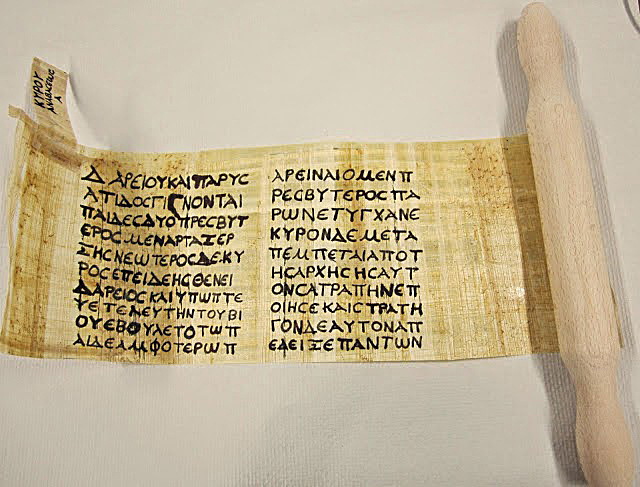 ΚΥΡΟΥ
ΑΝΑΒΑϹΕΩϹ
Α
ΔΑΡΕΙΟΥΚΑΙΠΑΡΥϹ
ΑΤΙΔΟϹΓΙΓΝΟΝΤΑΙ
ΠΑΙΔΕϹΔΥΟΠΡΕϹΒΥΤ
ΕΡΟϹΜΕΝΑΡΤΑΞΕΡ
ΞΗϹΝΕΩΤΕΡΟϹΔΕΚΥ
ΡΟϹΕΠΕΙΔΕΗϹΘΕΝΕΙ
ΔΑΡΕΙΟϹΚΑΙΥΠΩΠΤΕ
ΥΕΤΕΛΕΥΤΗΝΤΟΥΒΙ
ΟΥΕΒΟΥΛΕΤΟΤΩΠ
ΑΙΔΕΑΜΦΟΤΕΡΩΠ
ΑΡΕΙΝΑΙΟΜΕΝΠ
ΡΕϹΒΥΤΕΡΟϹΠΑ
ΡΩΝΕΤΥΓΧΑΝΕ
ΚΥΡΟΝΔΕΜΕΤΑ
ΠΕΜΠΕΤΑΙΑΠΟΤ
ΗϹΑΡΧΗϹΗϹΑΥΤ
ΟΝϹΑΤΡΑΠΗΝΕΠ
ΟΙΗϹΕΚΑΙϹΤΡΑΤΗ
ΓΟΝΔΕΑΥΤΟΝΑΠ
ΕΔΕΙΞΕΠΑΝΤΩΝ